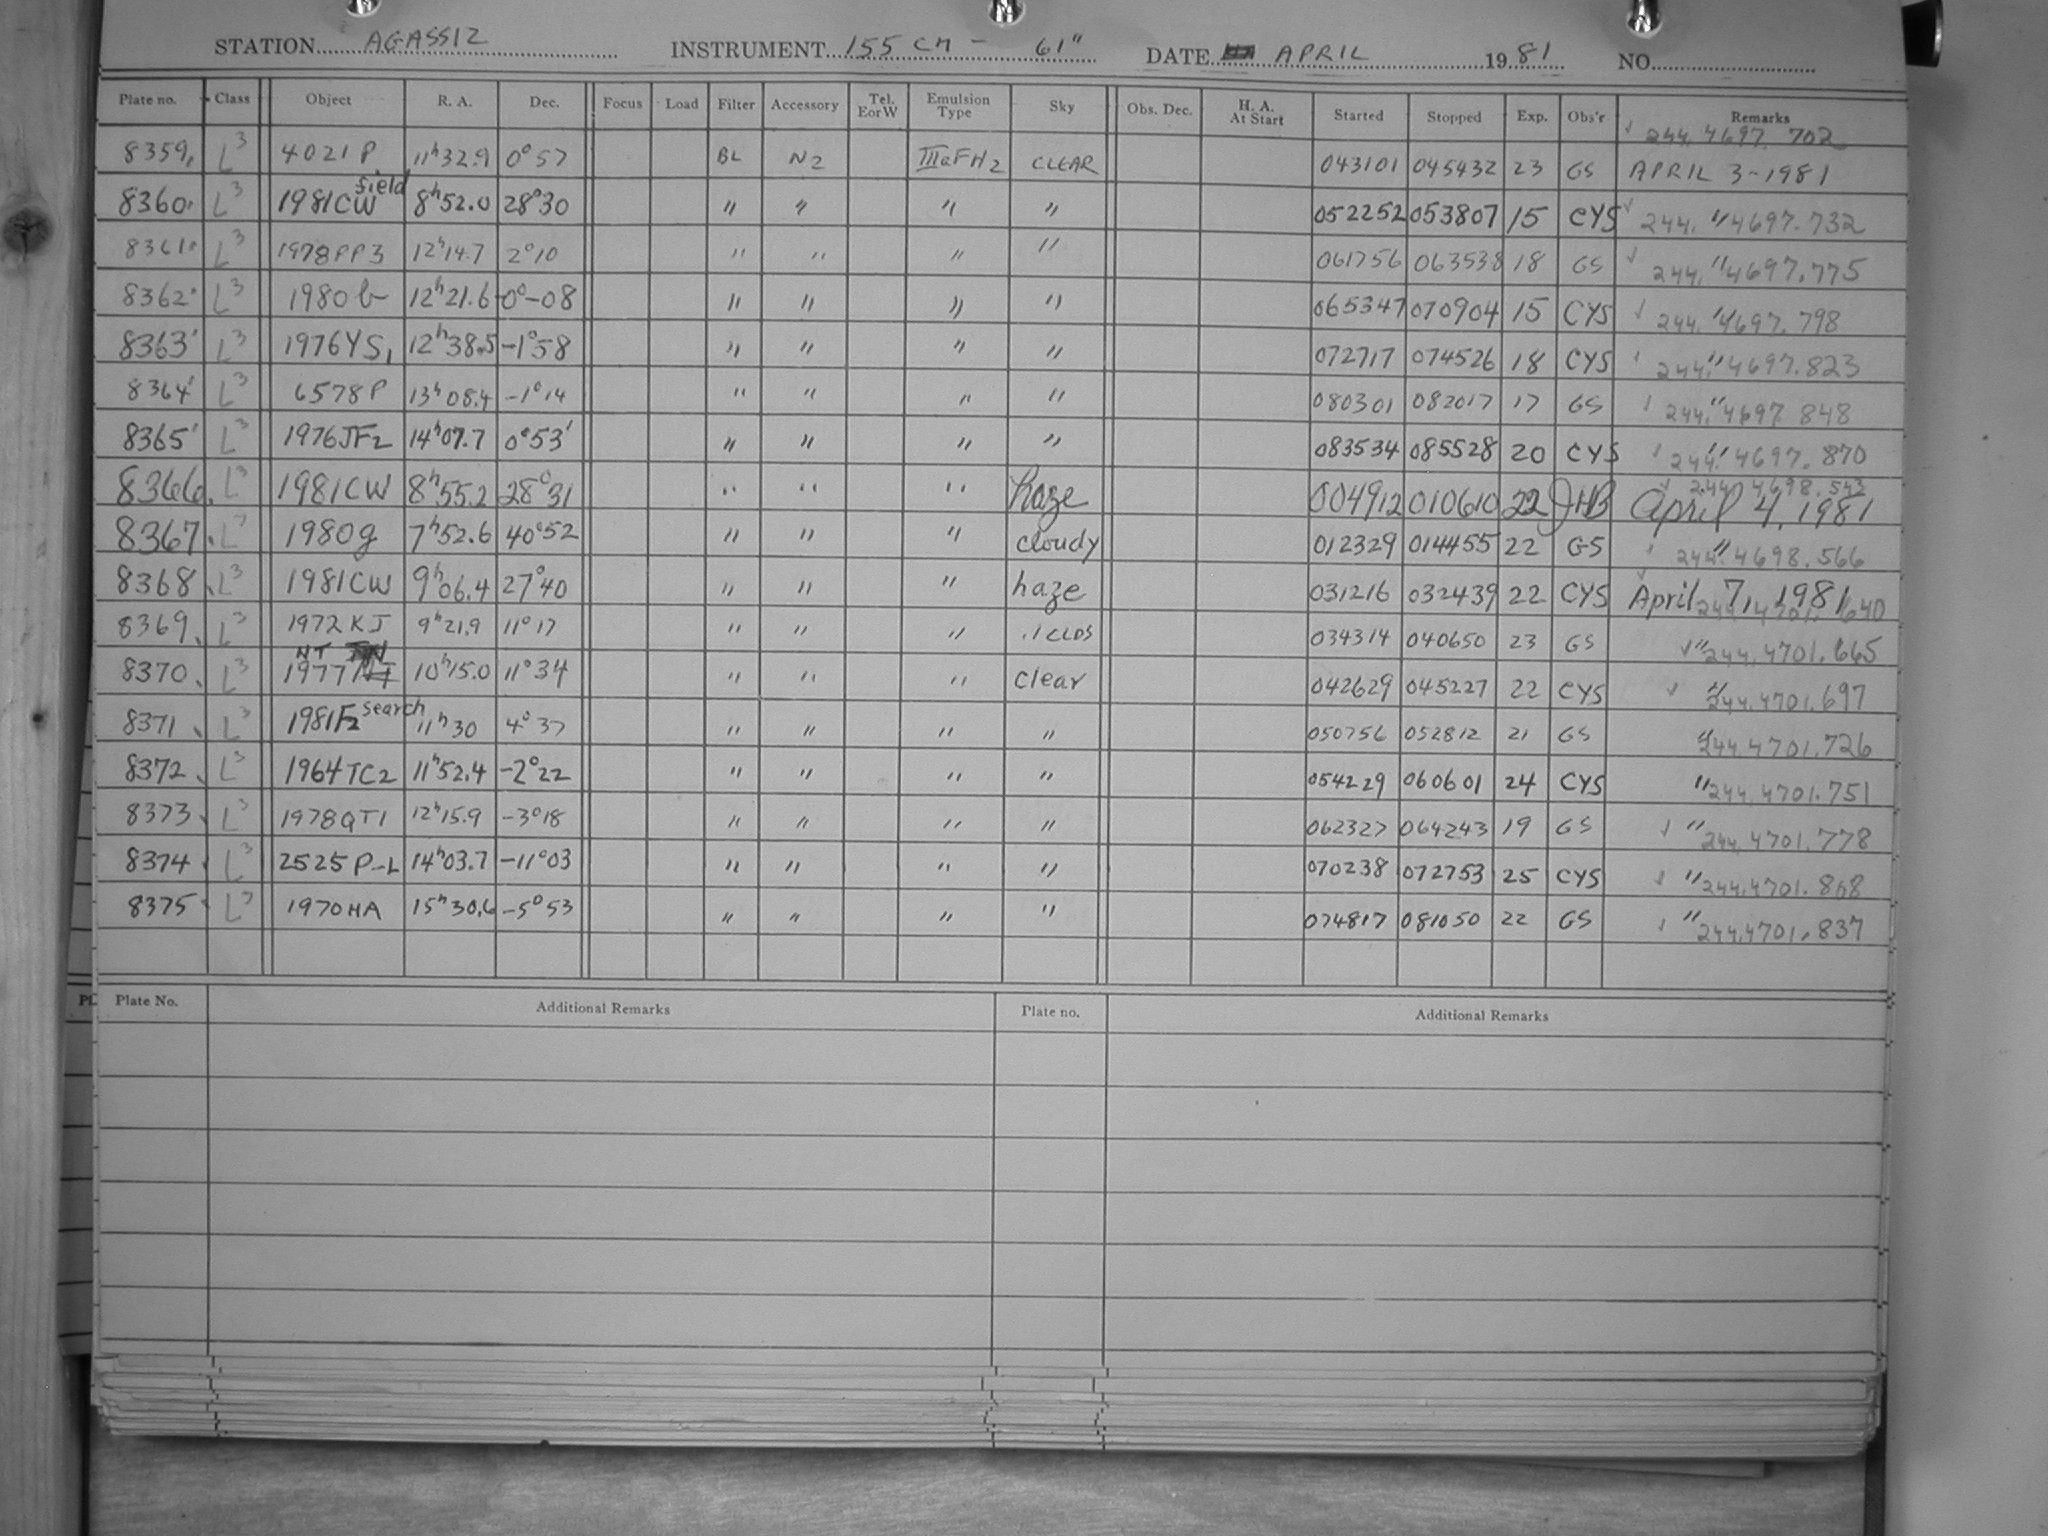 STATION AGASSIZ INSTRUMENT 155 CM - 61" DATE APRIL 1981 NO.
Plate no. Class Object R. A. Dec. Focus Load Filter Accessory Tel. EorW Emulsion Type Sky Obs. Dec. H. A. At Start Started Stopped Exp. Obs'r Remarks
8359 L3 4021 P 11h32.9 0°57 BL N2 IIIaFH2 CLEAR 043101 045432 23 GS 244.4697.702 APRIL 3-1981
8360 L3 1981CW field 8h52.0 28°30 " " " " 052252 053807 15 CYS " 244.4697.732
8361 L3 1978PP3 12h14.7 2°10 " " " " 061756 063538 18 GS " 244.4697.775
8362 L3 1980b 12h21.6 -0°-08 " " " " 065347 070904 15 CYS " 244.4697.798
8363 L3 1976YS1 12h38.5 -1°58 " " " " 072717 074526 18 CYS " 244.4697.823
8364 L3 6578P 13h08.4 -1°14 " " " " 080301 082017 17 GS " 244.4697.848
8365 L3 1976JF2 14h07.7 0°53' " " " " 083534 085528 20 CYS " 244.4697.870
8366 L3 1981CW 8h55.2 28°31 " " " haze 004912 010610 22 JHB 244.4698.543 April 4, 1981
8367 L3 1980g 7h52.6 40°52 " " " cloudy 012329 014455 22 GS " 244.4698.566
8368 L3 1981CW 9h06.4 27°40 " " " haze 031216 032439 22 CYS April 7, 1981 244.4701.640
8369 L3 1972KJ 9h21.9 11°17 " " " .1 CLDS 034314 040650 23 GS " 244.4701.665
8370 L3 1977 NT 10h15.0 11°34 " " " clear 042629 045227 22 CYS " 244.4701.697
8371 L3 1981F2 search 11h30 4°37 " " " " 050756 052812 21 GS " 244.4701.726
8372 L3 1964TC2 11h52.4 -2°22 " " " " 054229 060601 24 CYS " 244.4701.751
8373 L3 1978QT1 12h15.9 -3°18 " " " " 062327 064243 19 GS " 244.4701.778
8374 L3 2525 P-L 14h03.7 -11°03 " " " " 070238 072753 25 CYS " 244.4701.868
8375 L3 1970HA 15h30.6 -5°53 " " " " 074817 081050 22 GS " 244.4701.837
Plate No. Additional Remarks Plate no. Additional Remarks